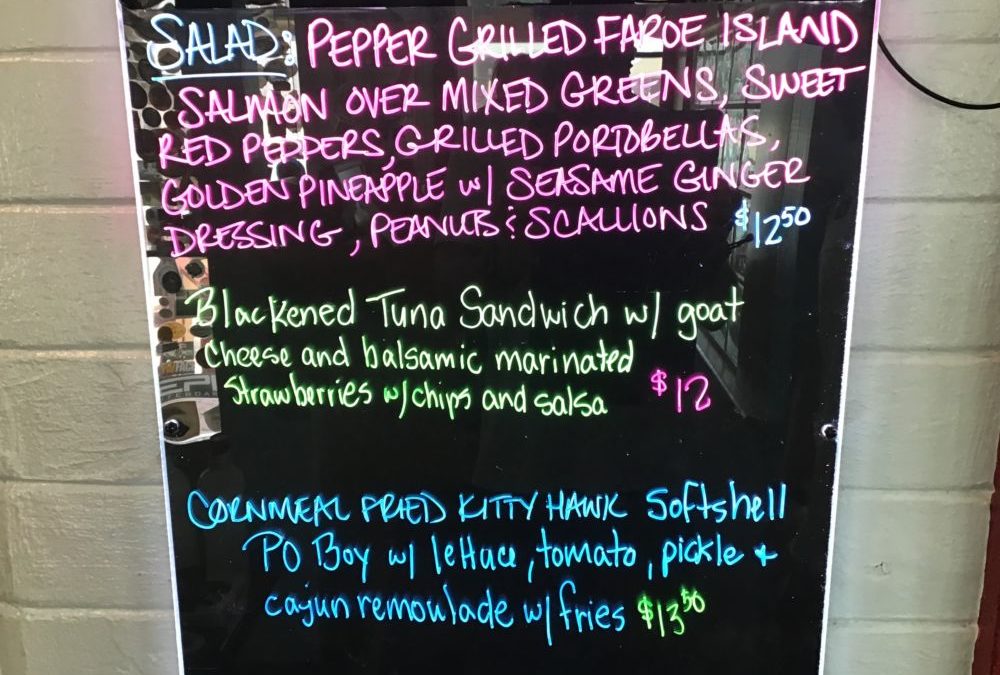 SALAD: PEPPER GRILLED FAROE ISLAND
SALMON OVER MIXED GREENS, SWEET
RED PEPPERS, GRILLED PORTOBELLAS,
GOLDEN PINEAPPLE w/ SEASAME GINGER
DRESSING, PEANUTS & SCALLIONS $12.50
Blackened Tuna Sandwich w/ goat
cheese and balsamic marinated
strawberries w/ chips and salsa $12
CORNMEAL FRIED KITTY HAWK Softshell
PO BOY w/ lettuce, tomato, pickle +
cajun remoulade w/ fries $13.50